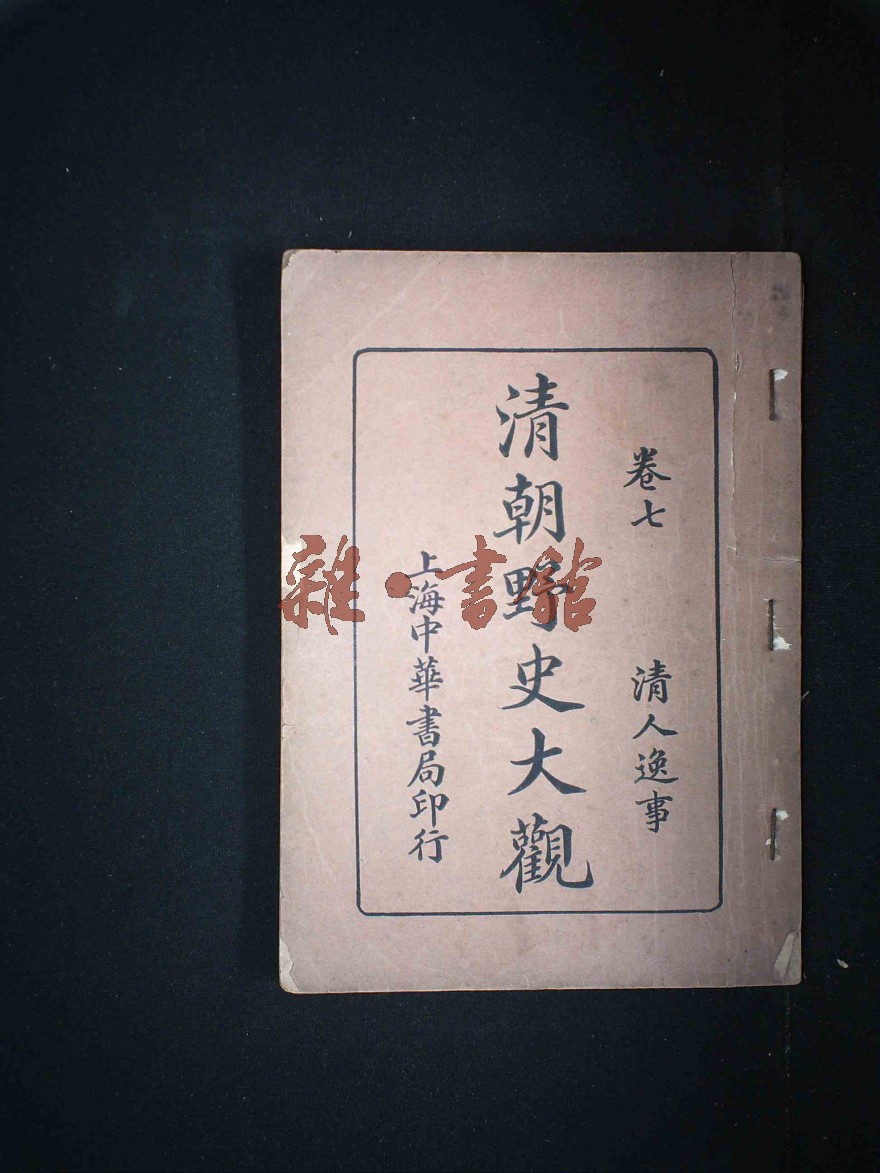 卷七 清人逸事
清朝野史大觀
上海中華書局印行
雜·書館